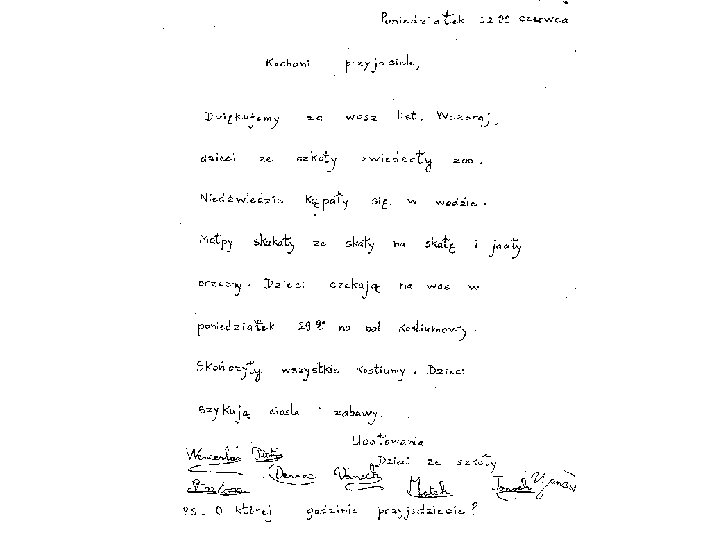 Poniedziałek 22 go czerwca
Kochani przyjaciele,
Dziękujemy za wasz list. Wczoraj,
dzieci ze szkoły zwiedzały zoo.
Niedźwiedzie kąpały się w wodzie.
Małpy skakały ze skały na skałę i jadły
orzechy. Dzieci czekają na was w
poniedziałek 29 go na bal kostiumowy.
Skończyły wszystkie kostiumy. Dzieci
szykują ciasta i zabawy.
Ucałowania
Dzieci ze szkoły
PS. O której godzinie przyjdziecie?